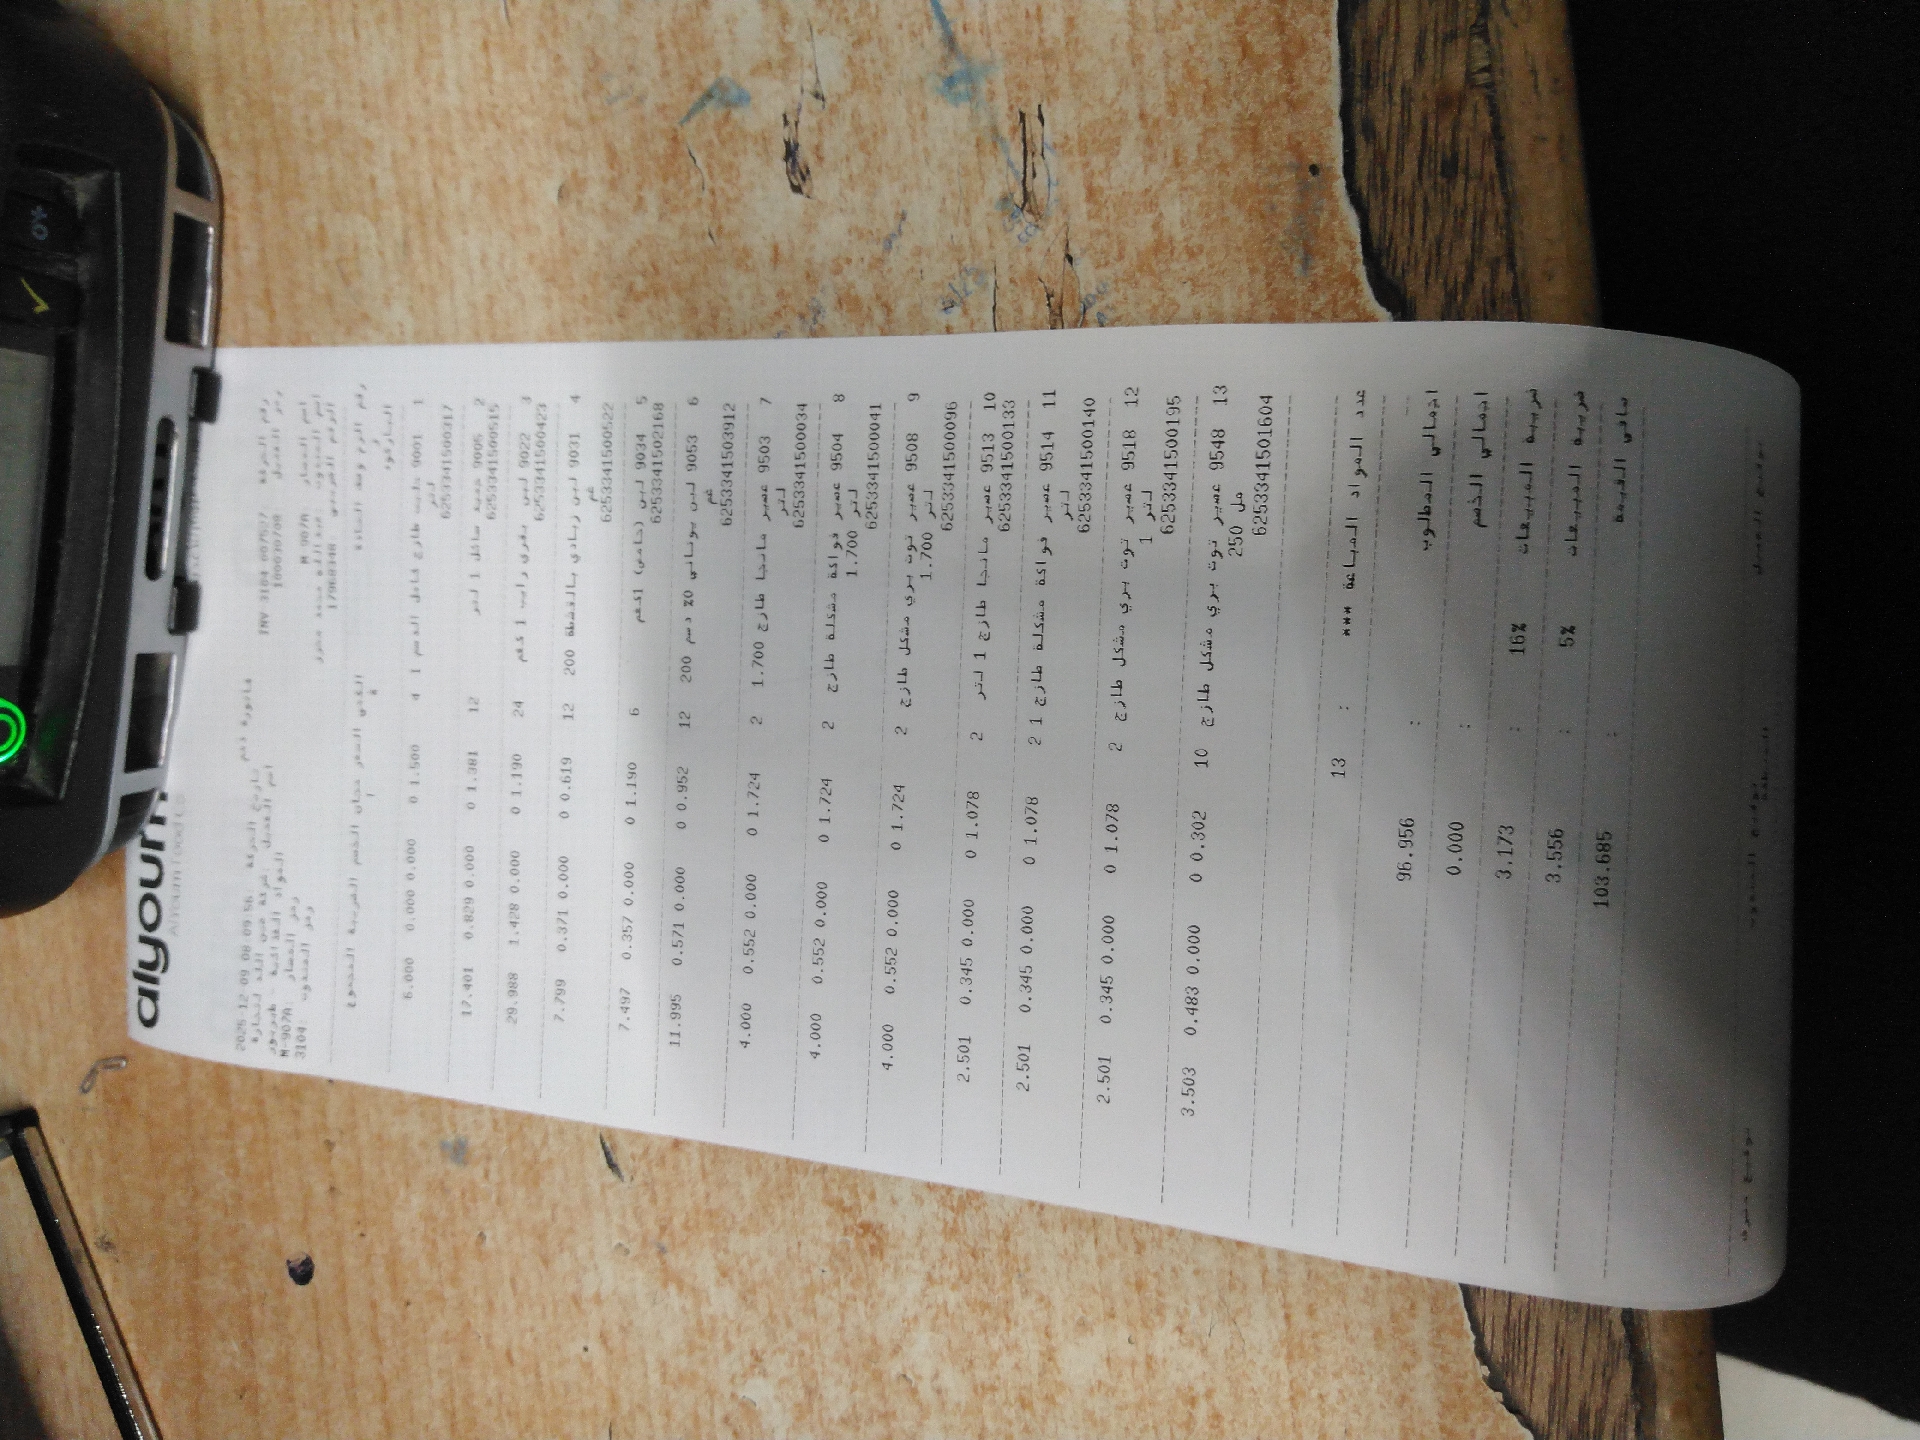 alyoum
AlYoum Food Co
فاتورة ذمم
رقم الحركة INV 3104 007507 تاريخ الحركة 09:56 08 09-12-2025
رمز العميل
اسم المسار M 907A
3104:
رقم الرم وصف المادة الكمي السعر مجان الخصم الضريبة المجموع
الباركود
1 9001 حليب طازج كامل الدسم 1 4 1.500 0 0.000 0.000 6.000
لتر
6253341500317
2 9005 جميد سائل 1 لتر 12 1.381 0 0.000 0.829 17.401
6253341500515
3 9022 لبن بقري رايب 1 كغم 24 1.190 0 0.000 1.428 29.988
6253341500423
4 9031 لبن زبادي بالقشطة 200 12 0.619 0 0.000 0.371 7.799
غم
6253341500522
5 9034 لبن (حامض) 1كغم 6 1.190 0 0.000 0.357 7.497
6253341502168
6 9053 لبن يوناني 0% دسم 200 12 0.952 0 0.000 0.571 11.995
غم
6253341503912
7 9503 عصير مانجا طازج 1.700 2 1.724 0 0.000 0.552 4.000
لتر
6253341500034
8 9504 عصير فواكة مشكلة طازج 2 1.724 0 0.000 0.552 4.000
1.700 لتر
6253341500041
9 9508 عصير توت بري مشكل طازج 2 1.724 0 0.000 0.552 4.000
1.700 لتر
6253341500096
10 9513 عصير مانجا طازج 1 لتر 2 1.078 0 0.000 0.345 2.501
6253341500133
11 9514 عصير فواكة مشكلة طازج 1 2 1.078 0 0.000 0.345 2.501
لتر
6253341500140
12 9518 عصير توت بري مشكل طازج 2 1.078 0 0.000 0.345 2.501
1 لتر
6253341500195
13 9548 عصير توت بري مشكل طازج 10 0.302 0 0.000 0.483 3.503
250 مل
6253341501604
عدد المواد المباعة *** : 13
اجمالي المطلوب : 96.956
اجمالي الخصم : 0.000
ضريبة المبيعات 16% : 3.173
ضريبة المبيعات 5% : 3.556
صافي القيمة : 103.685
توقيع العميل
توقيع المندوب